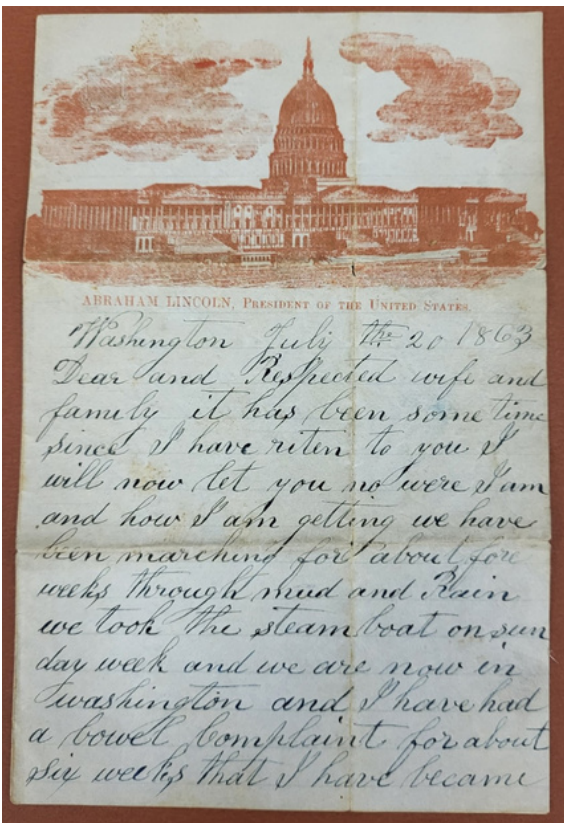 ABRAHAM LINCOLN, PRESIDENT OF THE UNITED STATES.
Washington July the 20 1863
Dear and Respected wife and
family it has been some time
since I have riten to you I
will now let you no were I am
and how I am getting we have
been marching for about fore
weeks through mud and Rain
we took the steam boat on sun
day week and we are now in
washington and I have had
a bowel Complaint for about
six weeks that I have became